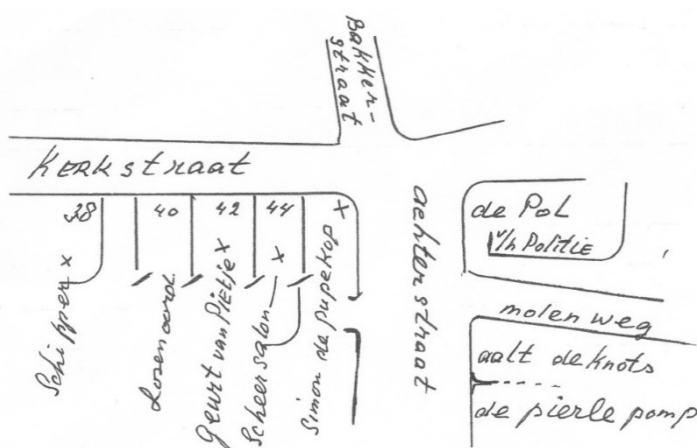 Bakker-
straat
Kerkstraat
38
40
42
44
x
Schipper x
Geurt van Pietje x
Scheersalon x
Simon de pupekop
achterstraat
de Pol
v/h Politie
molenweg
aalt de knots
de pierle pomp